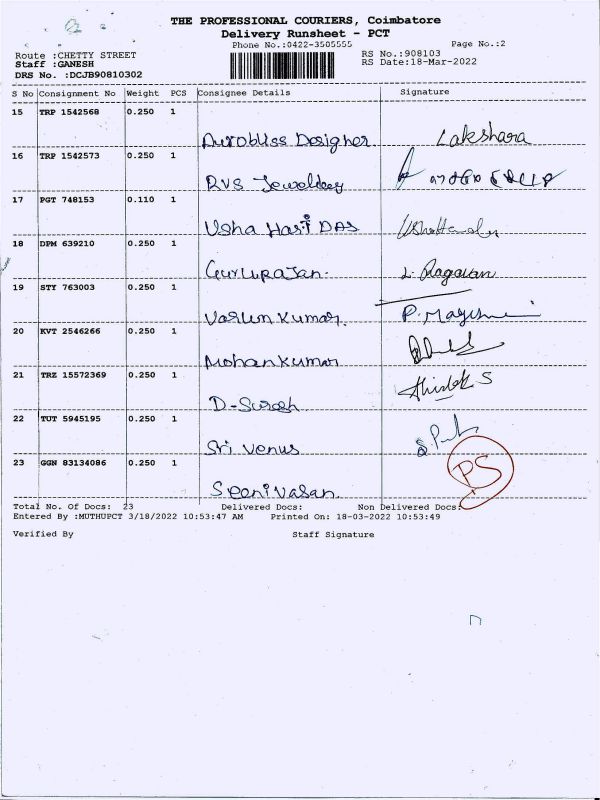 THE PROFESSIONAL COURIERS, Coimbatore
Delivery Runsheet - PCT
Phone No.:0422-3505555 Page No.:2
Route :CHETTY STREET RS No.:908103
Staff :GANESH RS Date:18-Mar-2022
DRS No. :DCJB90810302
S No Consignment No Weight PCS Consignee Details Signature
15 TRP 1542568 0.250 1
Aurobliss Designer Lakshara
16 TRP 1542573 0.250 1
RVS Jewellery
17 PGT 748153 0.110 1
Usha Hari DAS
18 DPM 639210 0.250 1
Gururajan. L. Ragavan
19 STY 763003 0.250 1
Varun Kumar.
20 KVT 2546266 0.250 1
Mohan Kumar
21 TRZ 15572369 0.250 1
D-Suresh
22 TUT 5945195 0.250 1
Sri Venus
23 GGN 83134086 0.250 1 PS
Seenivasan.
Total No. Of Docs: 23 Delivered Docs: Non Delivered Docs:
Entered By :MUTHUPCT 3/18/2022 10:53:47 AM Printed On: 18-03-2022 10:53:49
Verified By Staff Signature